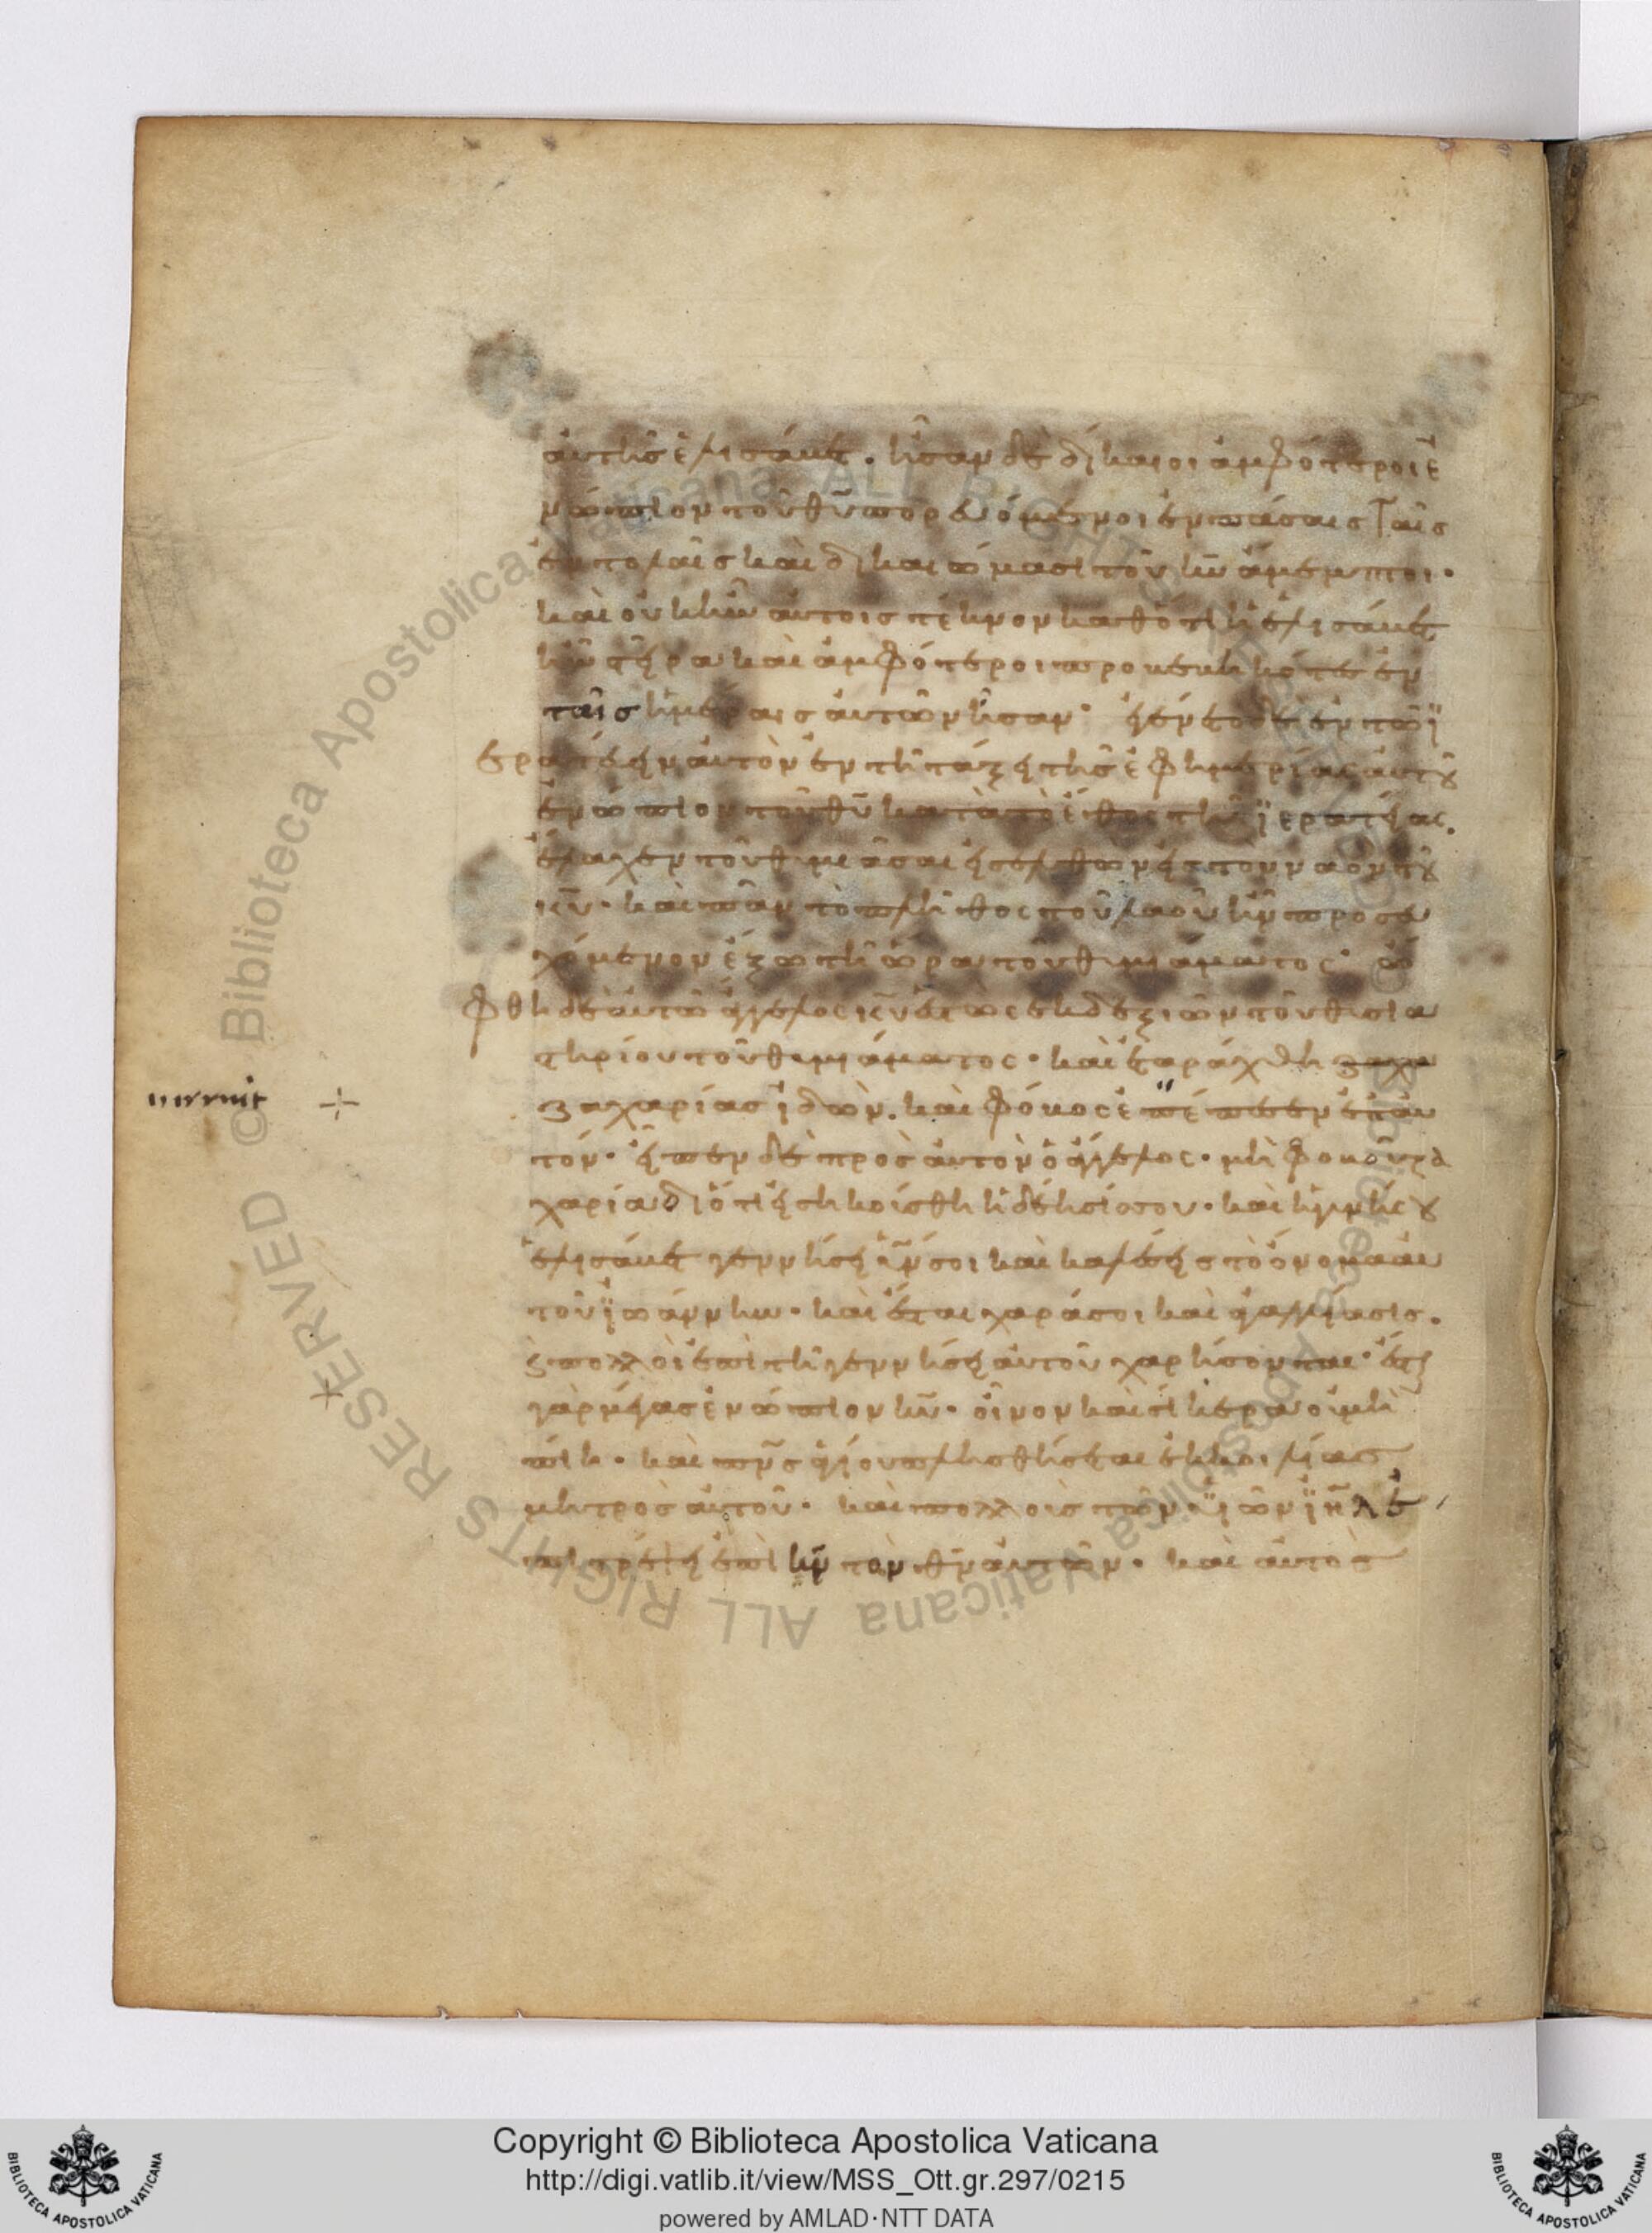 αὐτῆς ἐλισάβετ. ἦσαν δὲ δίκαιοι ἀμφότεροι ἐ
νώπιον τοῦ θῦ πορευόμενοι ἐν πάσαις ταῖς
ἐντολαῖς καὶ δικαιώμασι τοῦ κῦ ἄμεμπτοι.
καὶ οὐκ ἦν αὐτοῖς τέκνον καθότι ἡ ἐλισάβετ
ἦν στεῖρα καὶ ἀμφότεροι προβεβηκότες ἐν
ταῖς ἡμέραις αὐτῶν ἦσαν· ἐγένετο δὲ ἐν τῶ ϊ
ερατεύειν αὐτὸν ἐν τῆ τάξει τῆς ἐφημερίας αὐτοῦ
ἐνώπιον τοῦ θῦ κατὰ τὸ ἔθος τῆς ϊερατείας.
ἔλαχεν τοῦ θυμιᾶσαι εἰσελθὼν εἰς τὸν ναὸν τοῦ
κῦ· καὶ πᾶν τὸ πλῆθος τοῦ λαοῦ ἦν προσευ
χόμενον ἔξω τῆ ὥρα τοῦ θυμιάματος· ὤ
φθη δὲ αὐτῶ ἄγγελος κῦ ἑστὼς ἐκ δεξιῶν τοῦ θυσια
στηρίου τοῦ θυμιάματος· καὶ ἐταράχθη ζαχα
ζαχαρίας ἰδὼν. καὶ φόβος ἐπέπεσεν ἐπ αὐ
τόν· εἶπεν δὲ πρὸς αὐτὸν ὁ ἄγγελος· μὴ φοβοῦ ζα
χαρία διότι εἰσηκούσθη ἡ δέησίς σου· καὶ ἡ γυνή σου
ἐλισάβετ γεννήσει υἱόν σοι καὶ καλέσεις τὸ ὄνομα αὐ
τοῦ ϊωάννην· καὶ ἔσται χαρά σοι καὶ ἀγαλλίασις.
καὶ πολλοὶ ἐπὶ τῆ γεννήσει αὐτοῦ χαρήσονται· ἔσται
γὰρ μέγας ἐνώπιον κῦ· οἶνον καὶ σίκερα οὐ μὴ
πίη· καὶ πνς ἁγίου πλησθήσεται ἐκ κοιλίας
μητρὸς αὐτοῦ· καὶ πολλοὺς τῶν υἱῶν ϊηλ ἐ
πιστρέψει ἐπὶ κν τὸν θν αὐτῶν· καὶ αὐτὸς
Copyright © Biblioteca Apostolica Vaticana
http://digi.vatlib.it/view/MSS_Ott.gr.297/0215
powered by AMLAD·NTT DATA
BIBLIOTECA APOSTOLICA VATICANA
BIBLIOTECA APOSTOLICA VATICANA
© Biblioteca Apostolica Vaticana ALL RIGHTS RESERVED